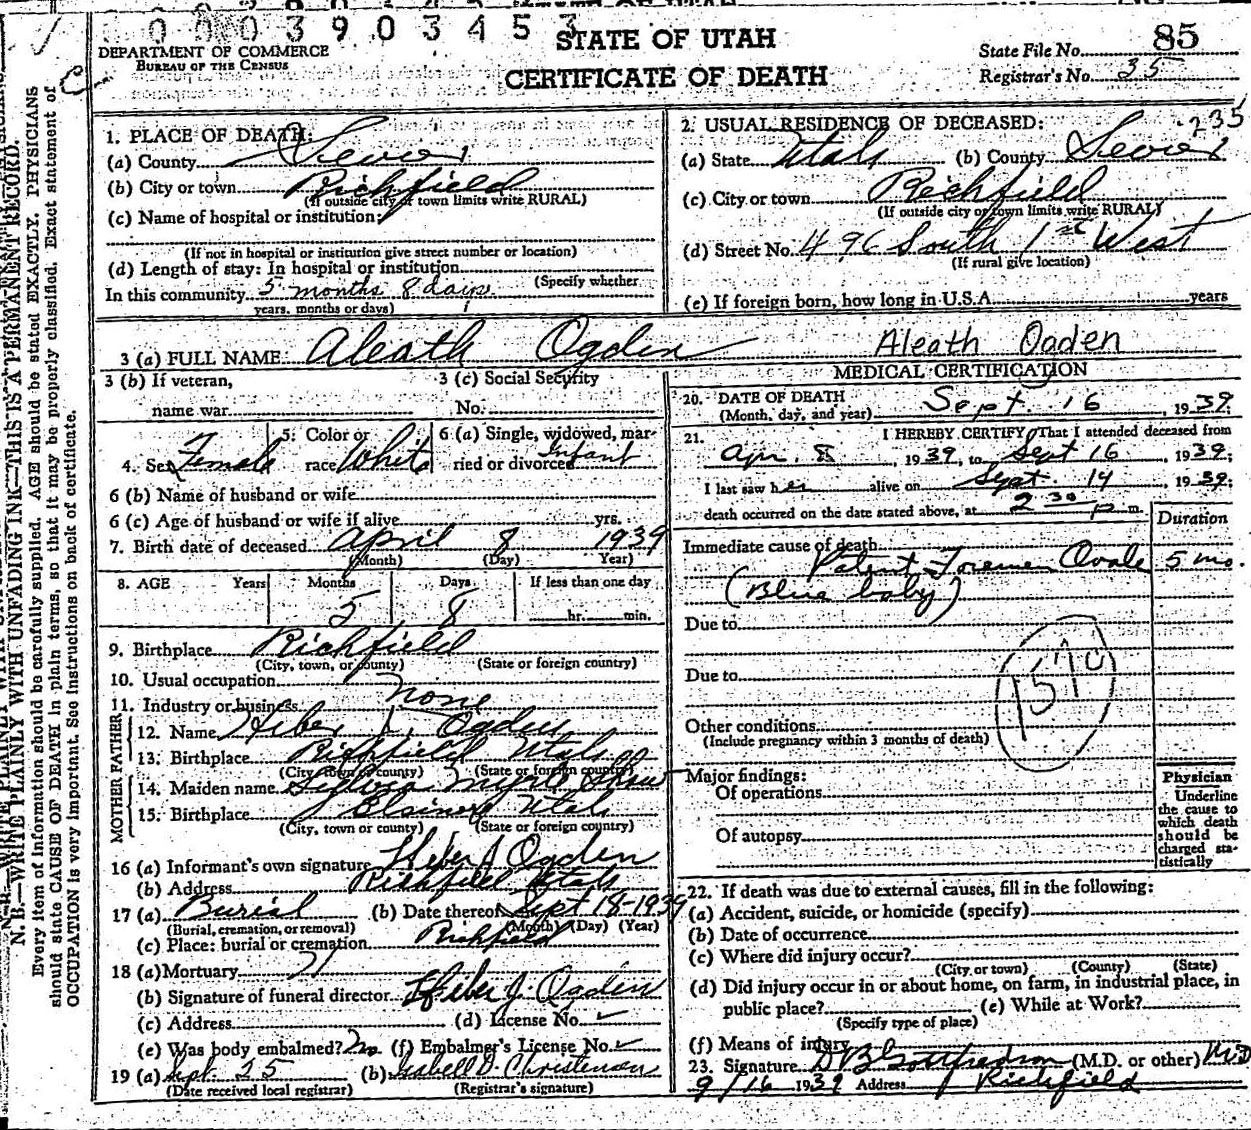 0 0 0 3 9 0 3 4 5 3
STATE OF UTAH
CERTIFICATE OF DEATH
DEPARTMENT OF COMMERCE
BUREAU OF THE CENSUS
State File No. 85
Registrar's No. 35
N. B.—WRITE PLAINLY WITH UNFADING INK—THIS IS A PERMANENT RECORD.
Every item of information should be carefully supplied. AGE should be stated EXACTLY. PHYSICIANS
should state CAUSE OF DEATH in plain terms, so that it may be properly classified. Exact statement of
OCCUPATION is very important. See instructions on back of certificate.
1. PLACE OF DEATH:
(a) County Sevier
(b) City or town Richfield
(If outside city or town limits write RURAL)
(c) Name of hospital or institution:
(If not in hospital or institution give street number or location)
(d) Length of stay: In hospital or institution
(Specify whether
In this community 5 months 8 days
years, months or days)
2. USUAL RESIDENCE OF DECEASED: 235
(a) State Utah (b) County Sevier
(c) City or town Richfield
(If outside city or town limits write RURAL)
(d) Street No. 496 South 1st West
(If rural give location)
(e) If foreign born, how long in U.S.A. years
3 (a) FULL NAME: Aleath Ogden Aleath Ogden
3 (b) If veteran,
name war
3 (c) Social Security
No.
4. Sex Female
5. Color or
race White
6 (a) Single, widowed, mar-
ried or divorced Infant
6 (b) Name of husband or wife
6 (c) Age of husband or wife if alive yrs.
7. Birth date of deceased April 8 1939
(Month) (Day) Year)
8. AGE Years Months Days If less than one day
5 8 hr. min.
9. Birthplace Richfield
(City, town, or county) (State or foreign country)
10. Usual occupation
11. Industry or business none
FATHER
12. Name Heber J. Ogden
13. Birthplace Richfield Utah
(City, town or county) (State or foreign country)
MOTHER
14. Maiden name Sylvia Myrle Shaw
15. Birthplace Elsinore Utah
(City, town or county) (State or foreign country)
16 (a) Informant's own signature Heber J Ogden
(b) Address Richfield Utah
17 (a) Burial (b) Date thereof Sept 18-1939
(Burial, cremation, or removal) (Month) (Day) (Year)
(c) Place: burial or cremation Richfield
18 (a) Mortuary
(b) Signature of funeral director Heber J. Ogden
(c) Address (d) License No. ✓
(e) Was body embalmed? No (f) Embalmer's License No. ✓
19 (a) Sept. 25 (b) Isabell D. Christensen
(Date received local registrar) (Registrar's signature)
MEDICAL CERTIFICATION
20. DATE OF DEATH
(Month, day, and year) Sept. 16, 1939;
21. I HEREBY CERTIFY, That I attended deceased from
Apr. 8, 1939, to Sept 16, 1939;
I last saw her alive on Sept. 14, 1939;
death occurred on the date stated above, at 2 30 p m.
Duration
Immediate cause of death
Patent Foramen Ovale 5 mo.
(Blue baby)
Due to
Due to
1570
Other conditions
(Include pregnancy within 3 months of death)
Major findings:
Of operations
Of autopsy
Physician
Underline
the cause to
which death
should be
charged sta-
tistically
22. If death was due to external causes, fill in the following:
(a) Accident, suicide, or homicide (specify)
(b) Date of occurrence
(c) Where did injury occur?
(City or town) (County) (State)
(d) Did injury occur in or about home, on farm, in industrial place, in
public place? (e) While at Work?
(Specify type of place)
(f) Means of injury
23. Signature D B Gottfredson (M.D. or other) M.D
9/16 1939 Address Richfield